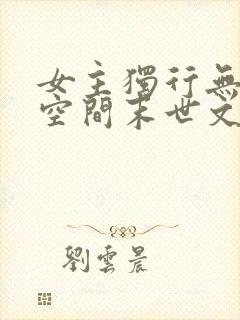 女主獨行無
空間末世文
劉雲晨